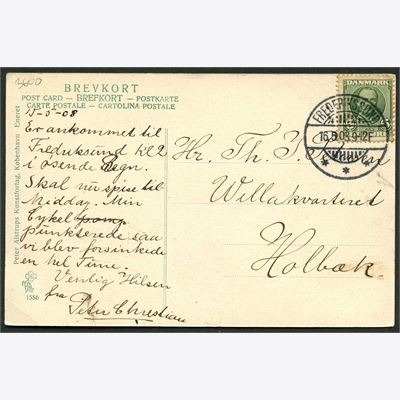 3600
BREVKORT
POST CARD — BREFKORT — POSTKARTE
CARTE POSTALE — CARTOLINA POSTALE
15-5-08
Er ankommet til
Fredriksund Kl 2
i øsende Regn.
Skal nu spise til
Middag. Min
Cykel
punkterede saa
vi blev forsinkede
en hel Time.
Venlig Hilsen
fra
Peter Christian
Hr. Th. J.
Willakvarteret
Holbæk.
DANMARK
FREDERIKSSUND
16.5.08.9-2F
Peter Alstrups Kunstforlag, København Eneret
1556